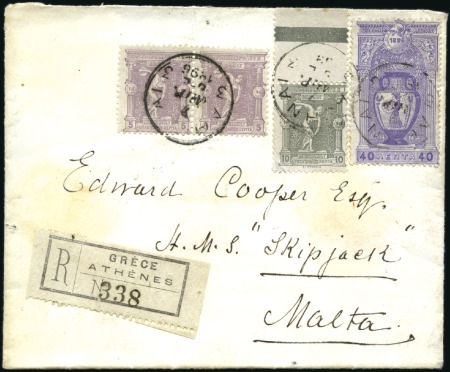 5 5
10 10
1896
40 ΛΕΠΤΑ 40
Edward Cooper Esq.
H.M.S. "Skipjack"
Malta.
R
GRÈCE
ATHÈNES
N 338